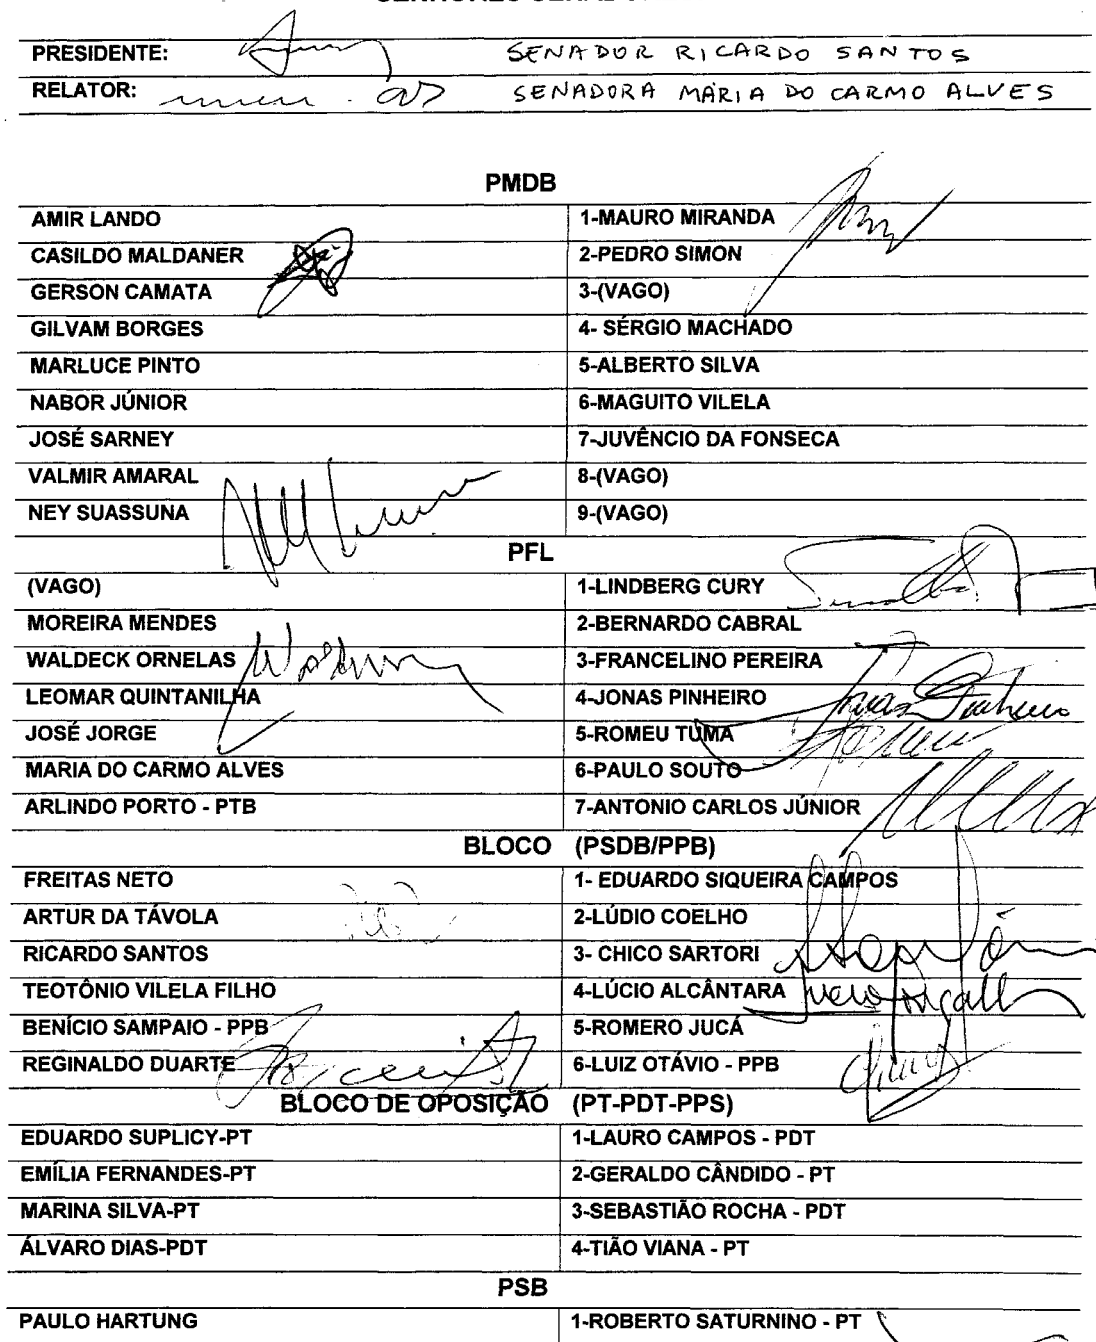 PRESIDENTE: SENADOR RICARDO SANTOS
RELATOR: SENADORA MARIA DO CARMO ALVES
PMDB
AMIR LANDO 1-MAURO MIRANDA
CASILDO MALDANER 2-PEDRO SIMON
GERSON CAMATA 3-(VAGO)
GILVAM BORGES 4- SÉRGIO MACHADO
MARLUCE PINTO 5-ALBERTO SILVA
NABOR JÚNIOR 6-MAGUITO VILELA
JOSÉ SARNEY 7-JUVÊNCIO DA FONSECA
VALMIR AMARAL 8-(VAGO)
NEY SUASSUNA 9-(VAGO)
PFL
(VAGO) 1-LINDBERG CURY
MOREIRA MENDES 2-BERNARDO CABRAL
WALDECK ORNELAS 3-FRANCELINO PEREIRA
LEOMAR QUINTANILHA 4-JONAS PINHEIRO Jonas Pinheiro
JOSÉ JORGE 5-ROMEU TUMA
MARIA DO CARMO ALVES 6-PAULO SOUTO
ARLINDO PORTO - PTB 7-ANTONIO CARLOS JÚNIOR
BLOCO (PSDB/PPB)
FREITAS NETO 1- EDUARDO SIQUEIRA CAMPOS
ARTUR DA TÁVOLA 2-LÚDIO COELHO
RICARDO SANTOS 3- CHICO SARTORI
TEOTÔNIO VILELA FILHO 4-LÚCIO ALCÂNTARA
BENÍCIO SAMPAIO - PPB 5-ROMERO JUCÁ
REGINALDO DUARTE 6-LUIZ OTÁVIO - PPB
BLOCO DE OPOSIÇÃO (PT-PDT-PPS)
EDUARDO SUPLICY-PT 1-LAURO CAMPOS - PDT
EMÍLIA FERNANDES-PT 2-GERALDO CÂNDIDO - PT
MARINA SILVA-PT 3-SEBASTIÃO ROCHA - PDT
ÁLVARO DIAS-PDT 4-TIÃO VIANA - PT
PSB
PAULO HARTUNG 1-ROBERTO SATURNINO - PT